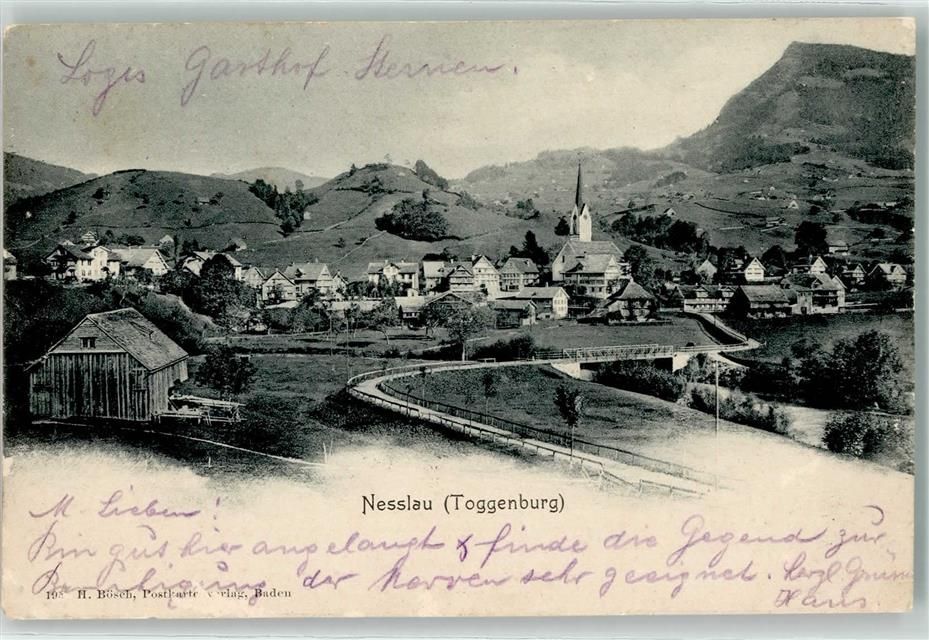 Logis Gasthof Sternen.
Nesslau (Toggenburg)
M. Lieben!
Bin gut hier angelangt & finde die Gegend zur
Beruhigung der Nerven sehr geeignet. Herzl. Grüsse
Hans
H. Bösch, Postkartenverlag, Baden